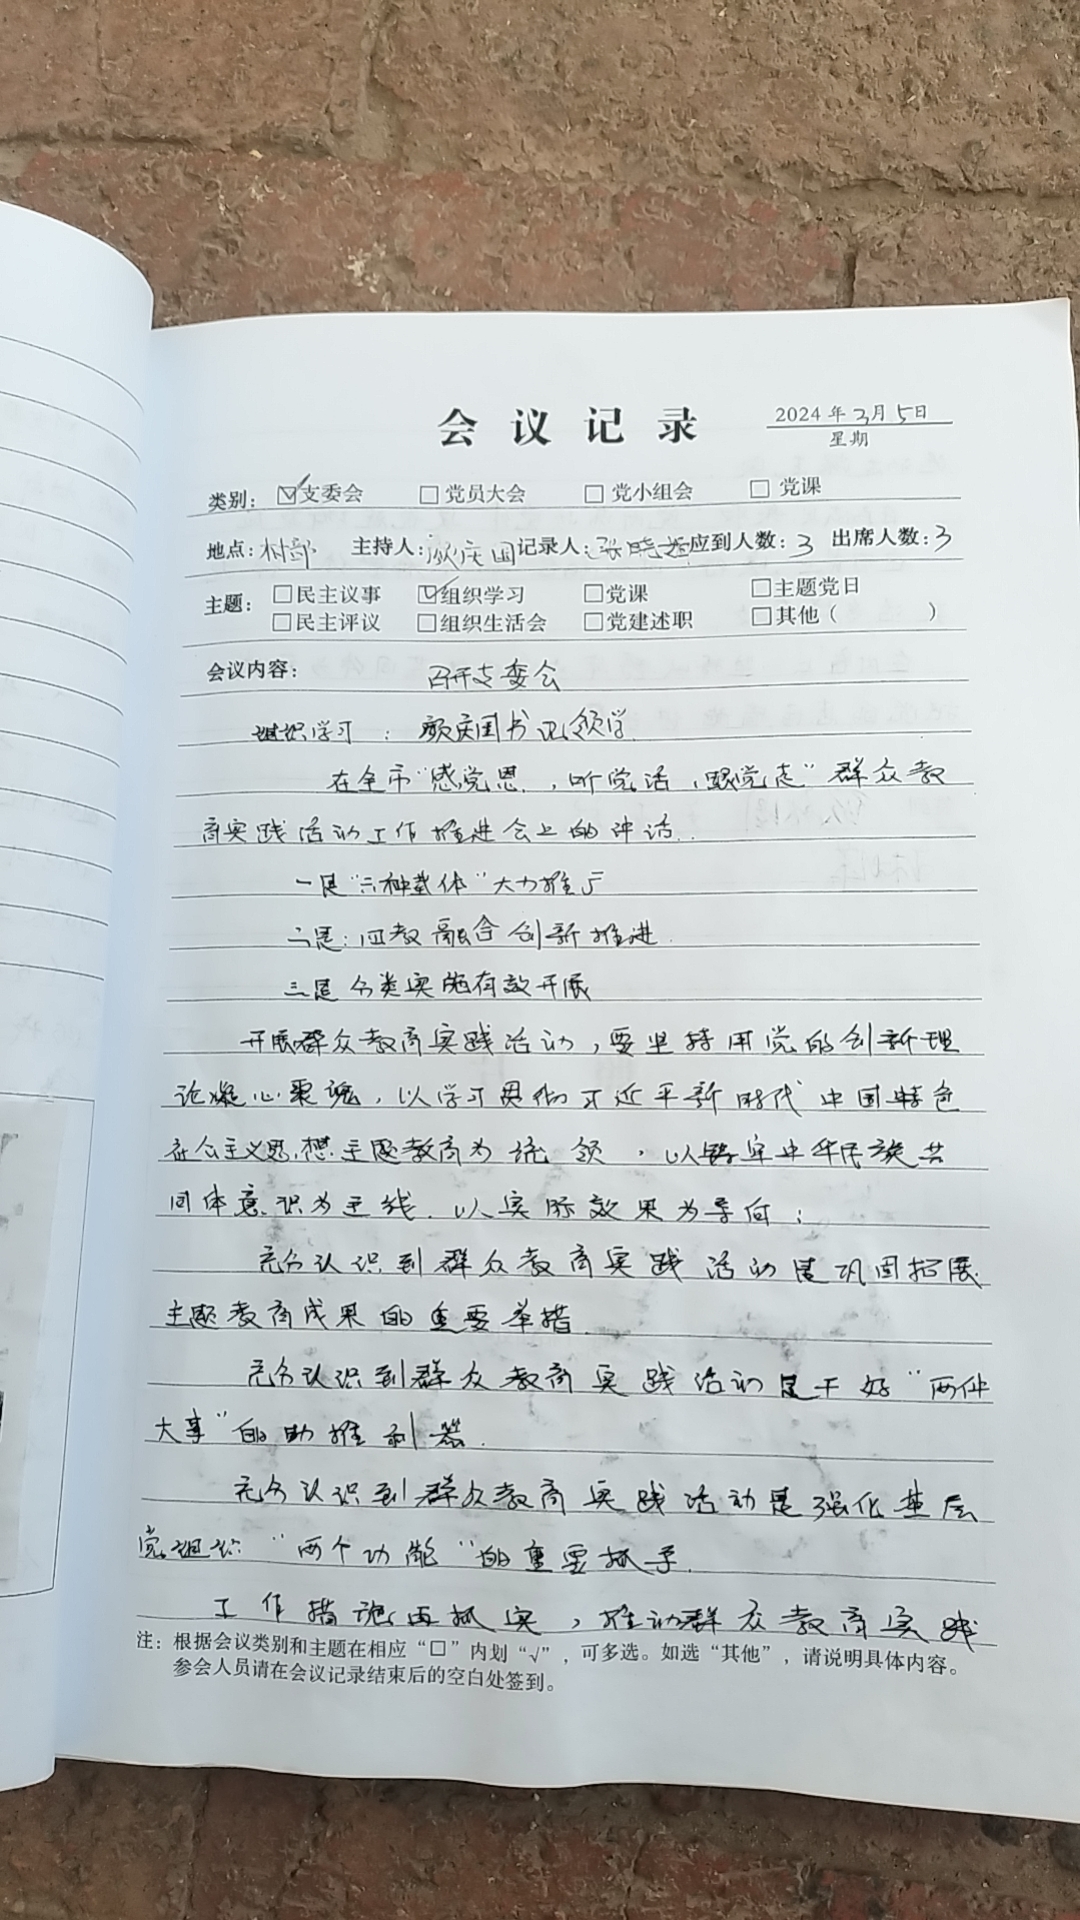 会议记录
2024年3月5日
星期
类别：☑支委会 □党员大会 □党小组会 □党课
地点：村部 主持人：庆国 记录人：张晓 应到人数：3 出席人数：3
主题：□民主议事 ☑组织学习 □党课 □主题党日
□民主评议 □组织生活会 □党建述职 □其他（ ）
会议内容： 召开支委会
组织学习：颜庆国书记领学
在全市“感党恩，听党话，跟党走”群众教
育实践活动工作推进会上的讲话.
一是“六种载体”大力推广
二是：四教融合创新推进.
三是分类实施有效开展
开展群众教育实践活动，要坚持用党的创新理
论凝心聚魂，以学习贯彻习近平新时代中国特色
社会主义思想主题教育为统领，以铸牢中华民族共
同体意识为主线.以实际效果为导向；
充分认识到群众教育实践活动是巩固拓展
主题教育成果的重要举措.
充分认识到群众教育实践活动是干好“两件
大事”的助推利器.
充分认识到群众教育实践活动是强化基层
党组织“两个功能”的重要抓手.
工作措施再抓实，推动群众教育实践
注：根据会议类别和主题在相应“□”内划“√”，可多选。如选“其他”，请说明具体内容。
参会人员请在会议记录结束后的空白处签到。